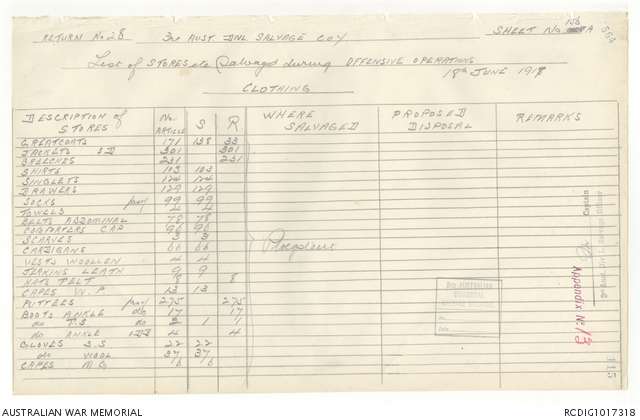 RETURN No 28 3rd AUST. DNL SALVAGE COY SHEET No 156 A
554
List of STORES etc Salvaged during OFFENSIVE OPERATIONS
18th JUNE 1917
CLOTHING
DESCRIPTION of STORES No. ARTICLE S R WHERE SALVAGED PROPOSED DISPOSAL REMARKS
GREATCOATS 171 138 33
JACKETS S.D 301 301
BREECHES 231 231
SHIRTS 103 103
SINGLETS 124 124
DRAWERS 129 129
SOCKS pairs 99 99
TOWELS 4 4
BELTS ABDOMINAL 78 78
COMFORTERS CAP 96 96
SCARVES 3 3
CARDIGANS 66 66
VESTS WOOLLEN 4 4
JERKINS LEATH 9 9
HATS FELT 8 8
CAPES W.P 13 13
PUTTEES pairs 275 275
BOOTS ANKLE do 17 17
do T.S do 2 1 1
do ANKLE 4 4
GLOVES S.S 22 22
do WOOL 37 37
CAPES M.G 16 16
Captain
3rd Aust. Div'l Salvage Officer
Appendix No 13
3rd AUSTRALIAN DIVISIONAL
No.
Date
115
AUSTRALIAN WAR MEMORIAL RCDIG1017318